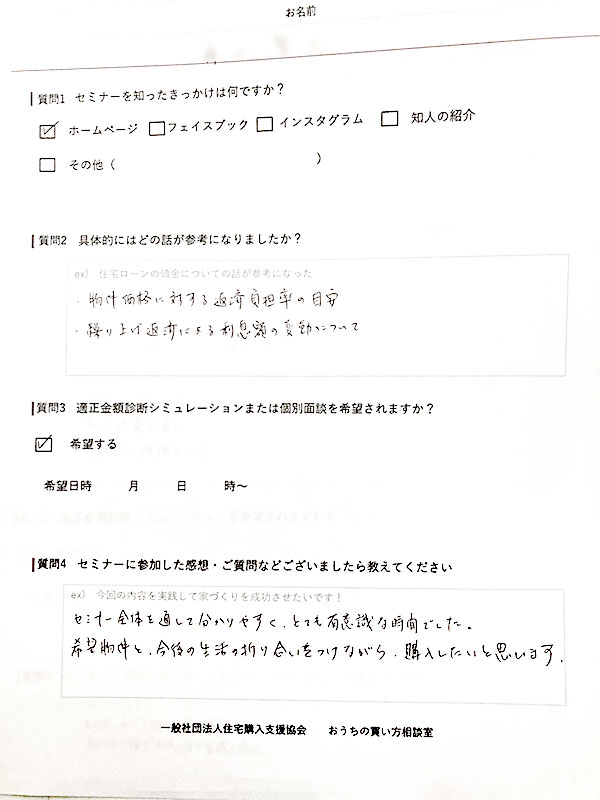 お名前
質問1 セミナーを知ったきっかけは何ですか？
☑ ホームページ □ フェイスブック □ インスタグラム □ 知人の紹介
□ その他（ ）
質問2 具体的にはどの話が参考になりましたか？
ex) 住宅ローンの頭金についての話が参考になった
・物件価格に対する返済負担率の目安
・繰り上げ返済による利息額の変動について
質問3 適正金額診断シミュレーションまたは個別面談を希望されますか？
☑ 希望する
希望日時 月 日 時～
質問4 セミナーに参加した感想・ご質問などございましたら教えてください
ex) 今回の内容を実践して家づくりを成功させたいです！
セミナー全体を通して分かりやすく、とても有意識な時間でした。
希望物件と、今後の生活の折り合いをつけながら、購入したいと思います。
一般社団法人住宅購入支援協会 おうちの買い方相談室